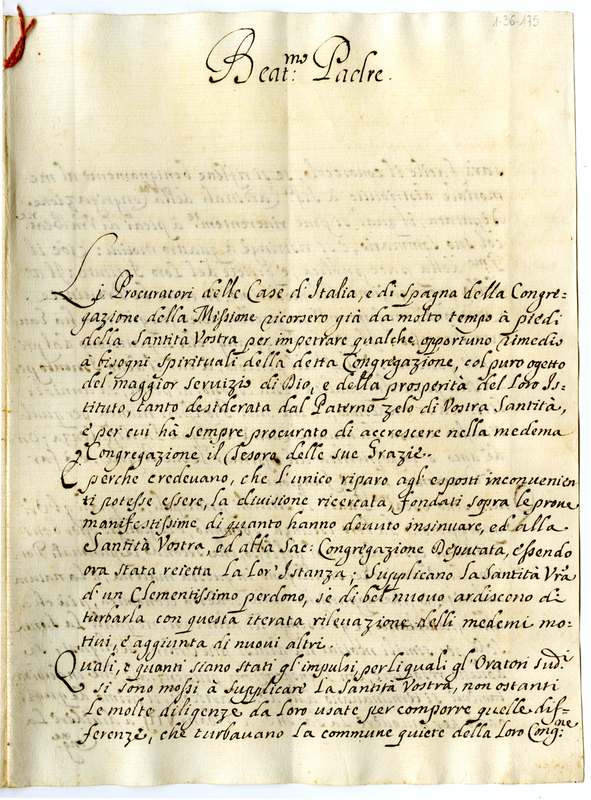 1-36-175
Beat.mo Padre.
Li Procuratori delle Case d'Italia, e di Spagna della Congre=
gazione della Missione ricorsero già da molto tempo à piedi
della Santità Vostra per impetrare qualche opportuno rimedio
à bisogni spirituali della detta Congregazione, col puro ogetto
del maggior servizio di Dio, e della prosperità del Loro Is=
tituto, tanto desiderata dal Paterno zelo di Vostra Santità,
e per cui hà sempre procurato di accrescere nella medema
Congregazione il Tesoro delle sue Grazie.
E perche credevano, che l'unico riparo agl'esposti inconvenien
ti potesse essere, la divisione ricercata, fondati sopra le prove
manifestissime, di quanto hanno dovuto insinuare, ed alla
Santità Vostra, ed alla Sac: Congregazione Deputata, essendo
ora stata reietta La Lor' Istanza; Supplicano La Santità Vrã
d'un Clementissimo perdono, se di bel nuovo ardiscono di
turbarla con questa iterata rilevazione delli medemi mo=
tivi, e aggiunta di nuovi altri.
Quali, e quanti siano stati gl'impulsi, perli quali gl'Oratori sud.i
si sono mossi à Supplicare La Santità Vostra, non ostanti
Le molte diligenze da Loro usate per comporre quelle dif=
ferenze, che turbavano La commune quiete della Loro Cong:ne